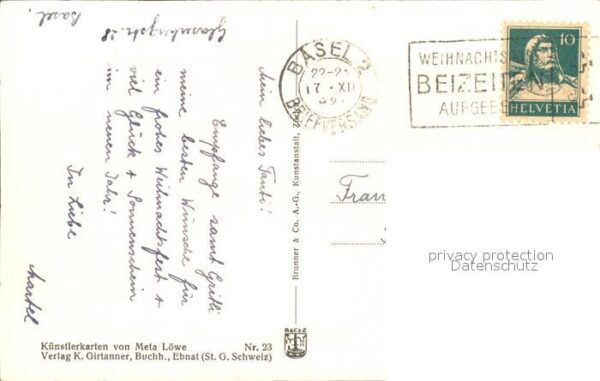 Basel.
Glaserbergstr. 28
Mein liebes Tanti!
Empfange samt Gritli
meine besten Wünsche für
ein frohes Weihnachtsfest +
viel Glück + Sonnenschein
im neuen Jahr!
In Liebe
BASEL 2
17. XII
BRIEFVERSAND
WEIHNACHTS
BEIZEITEN
AUFGEBE
10
HELVETIA
Brunner & Co. A.-G., Kunstanstalt,
privacy protection
Datenschutz
Künstlerkarten von Meta Löwe Nr. 23
Verlag K. Girtanner, Buchh., Ebnat (St. G. Schweiz)